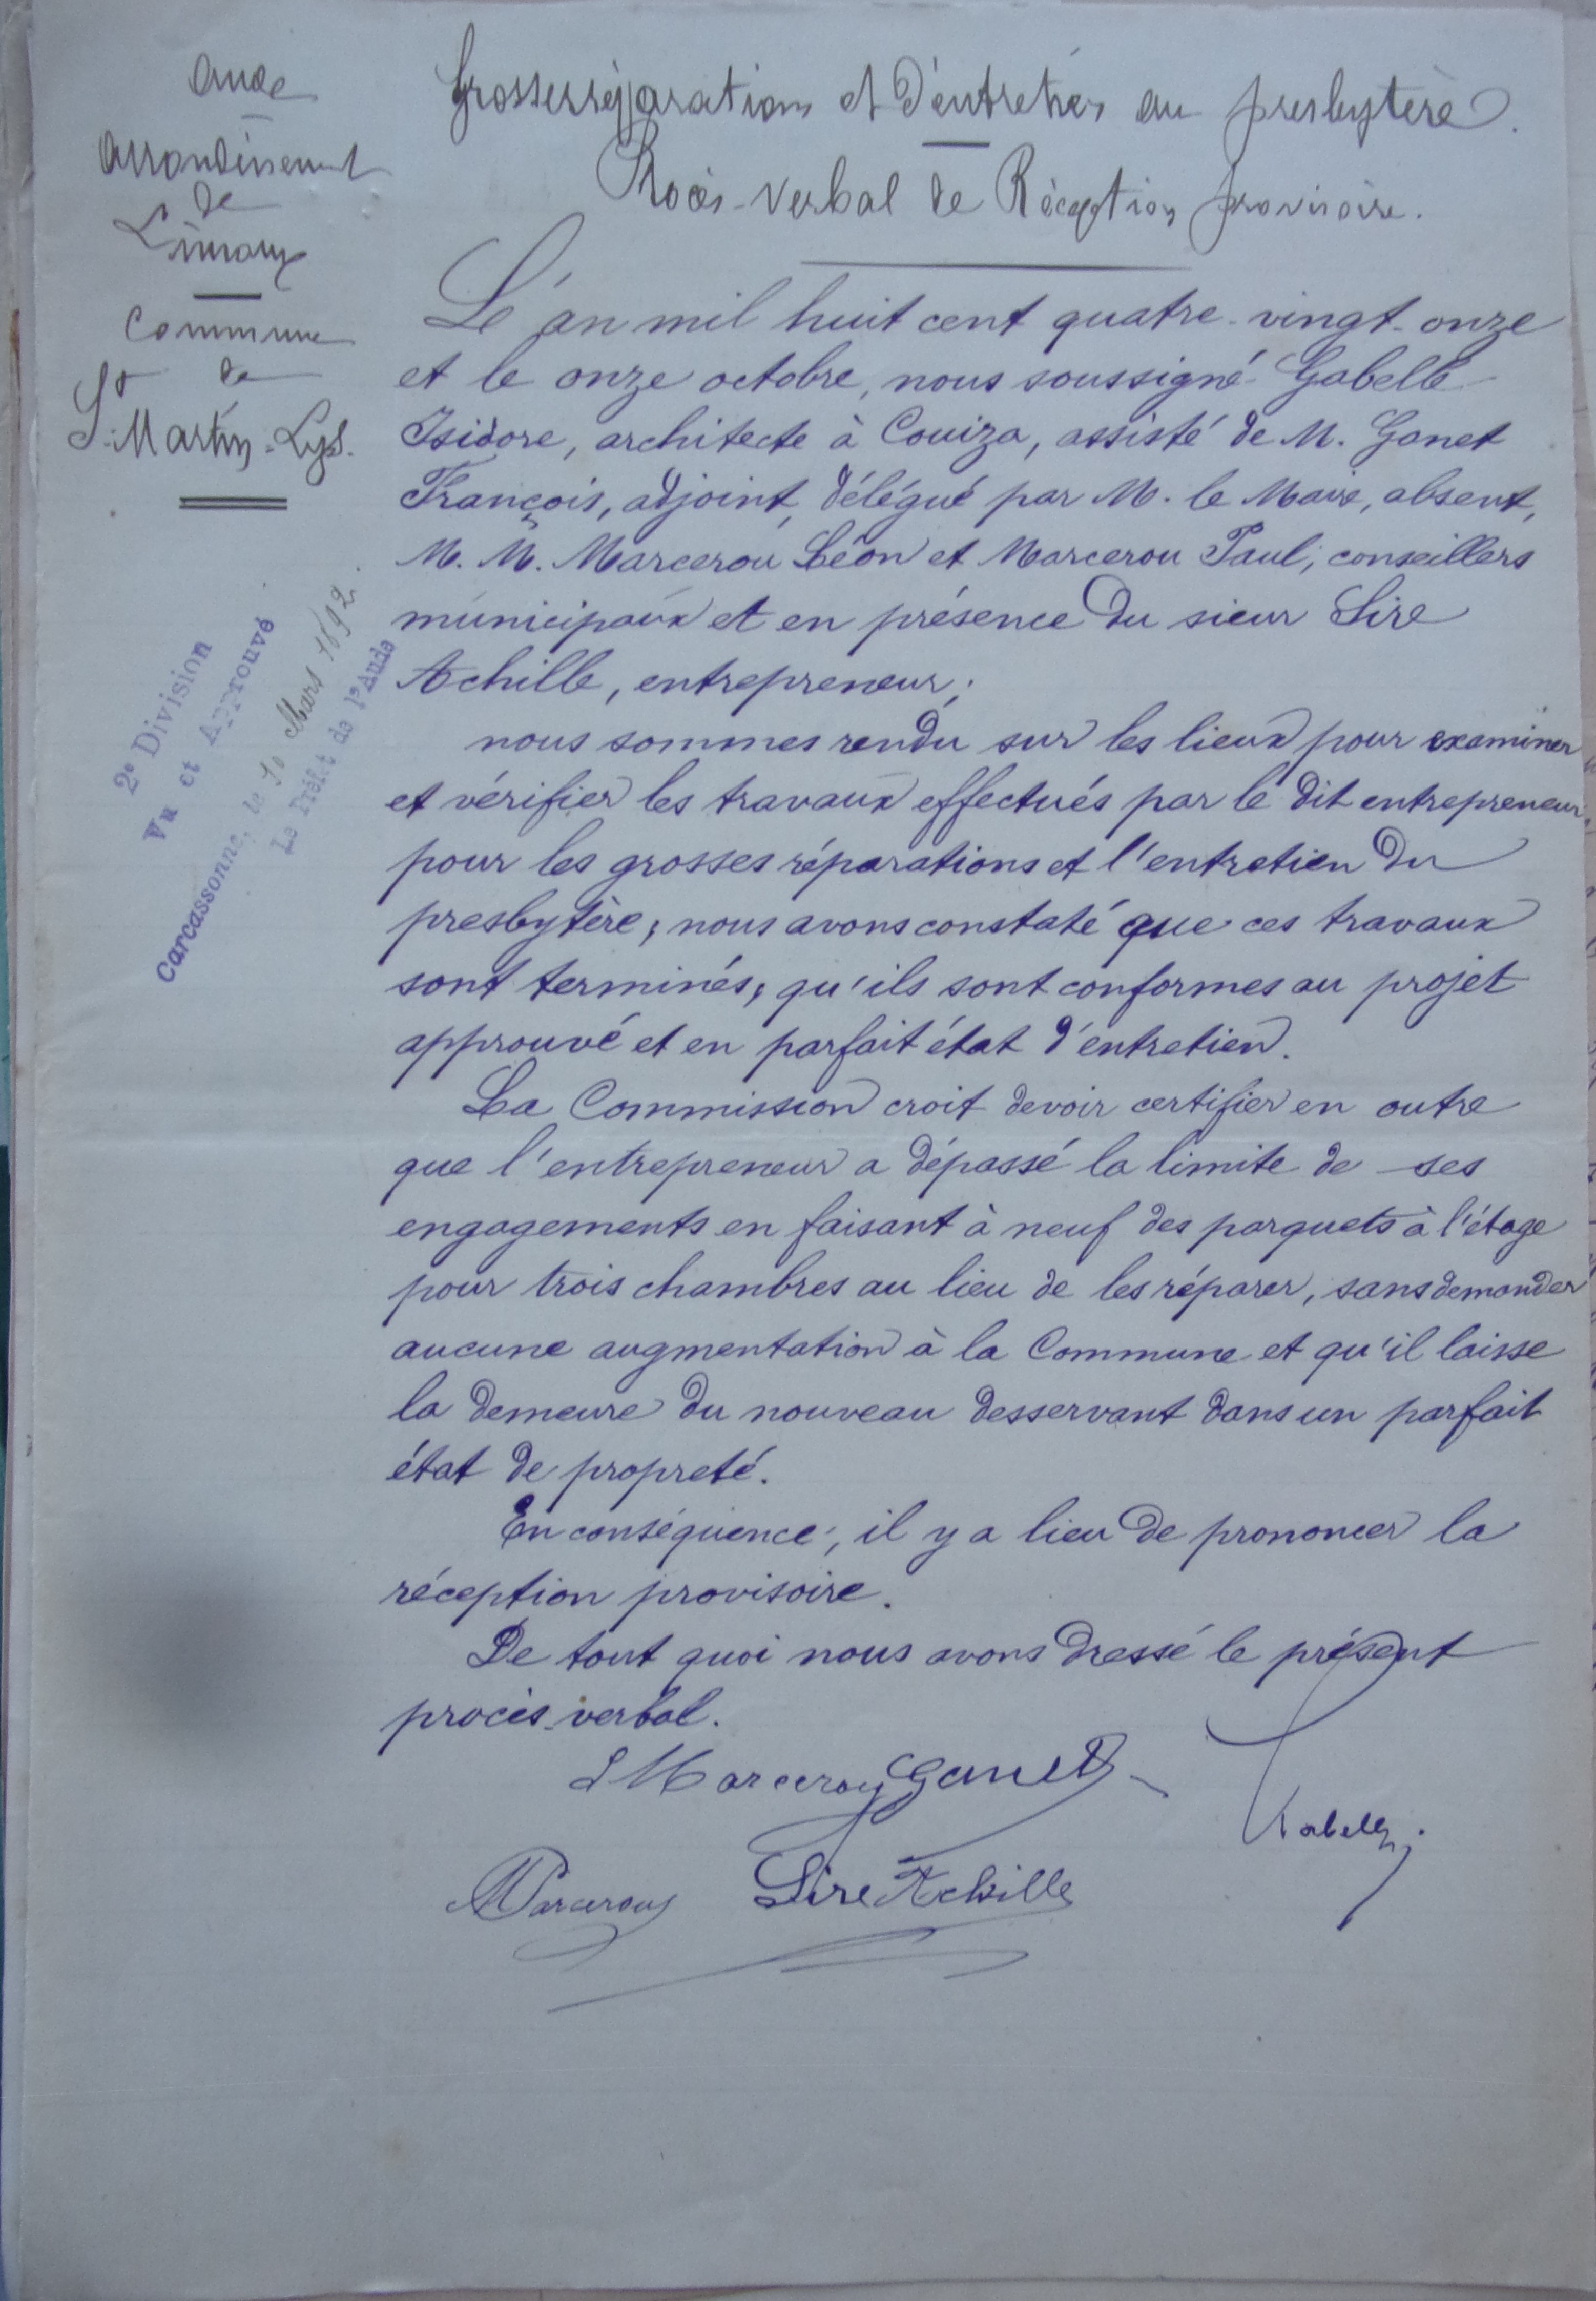 Aude
Arrondissement
de
Limoux
Commune
de
St Martin-Lys.
Grosses réparations et d'entretien au presbytère.
Procès-verbal de Réception provisoire.
L'an mil huit cent quatre-vingt-onze
et le onze octobre, nous soussigné Gabelle
Isidore, architecte à Couiza, assisté de M. Ganet
François, adjoint, délégué par M. le Maire, absent,
M. M. Marcerou Léon et Marcerou Paul, conseillers
municipaux et en présence du sieur Sire
Achille, entrepreneur;
nous sommes rendu sur les lieux pour examiner
et vérifier les travaux effectués par le dit entrepreneur,
pour les grosses réparations et l'entretien du
presbytère; nous avons constaté que ces travaux
sont terminés, qu'ils sont conformes au projet
approuvé et en parfait état d'entretien.
La Commission croit devoir certifier en outre
que l'entrepreneur a dépassé la limite de ses
engagements en faisant à neuf des parquets à l'étage
pour trois chambres au lieu de les réparer, sans demander
aucune augmentation à la Commune et qu'il laisse
la demeure du nouveau desservant dans un parfait
état de propreté.
En conséquence, il y a lieu de prononcer la
réception provisoire.
De tout quoi nous avons dressé le présent
procès-verbal.
L Marcerou Ganet
Gabelle
Marcerou Sire Achille
2e Division
Vu et Approuvé
Carcassonne, le 10 Mars 1892.
Le Préfet de l'Aude